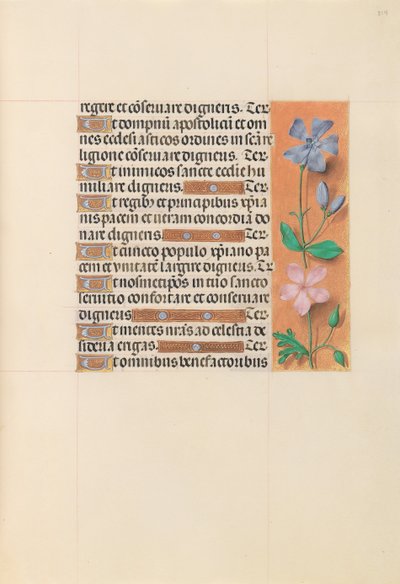 regere et cōservare digneris. Ter
Ut dompnū apostolicū et om
nes ecclesiasticos ordines in scā re
ligione cōservare digneris. Ter
Ut inimicos sancte ecclīe hu
miliare digneris. Ter
Ut regibꝰ et principibus xp̄ia
nis pacem et veram concordiā do
nare digneris. Ter
Ut cuncto populo xp̄iano pa
cem et unitatē largire digneris. Tr
Ut nosmetip̄os in tuo sancto
servitio confortare et conservare
digneris Ter
Ut mentes nr̄as ad celestia de
sideria erigas. Ter
Ut omnibus benefactoribus